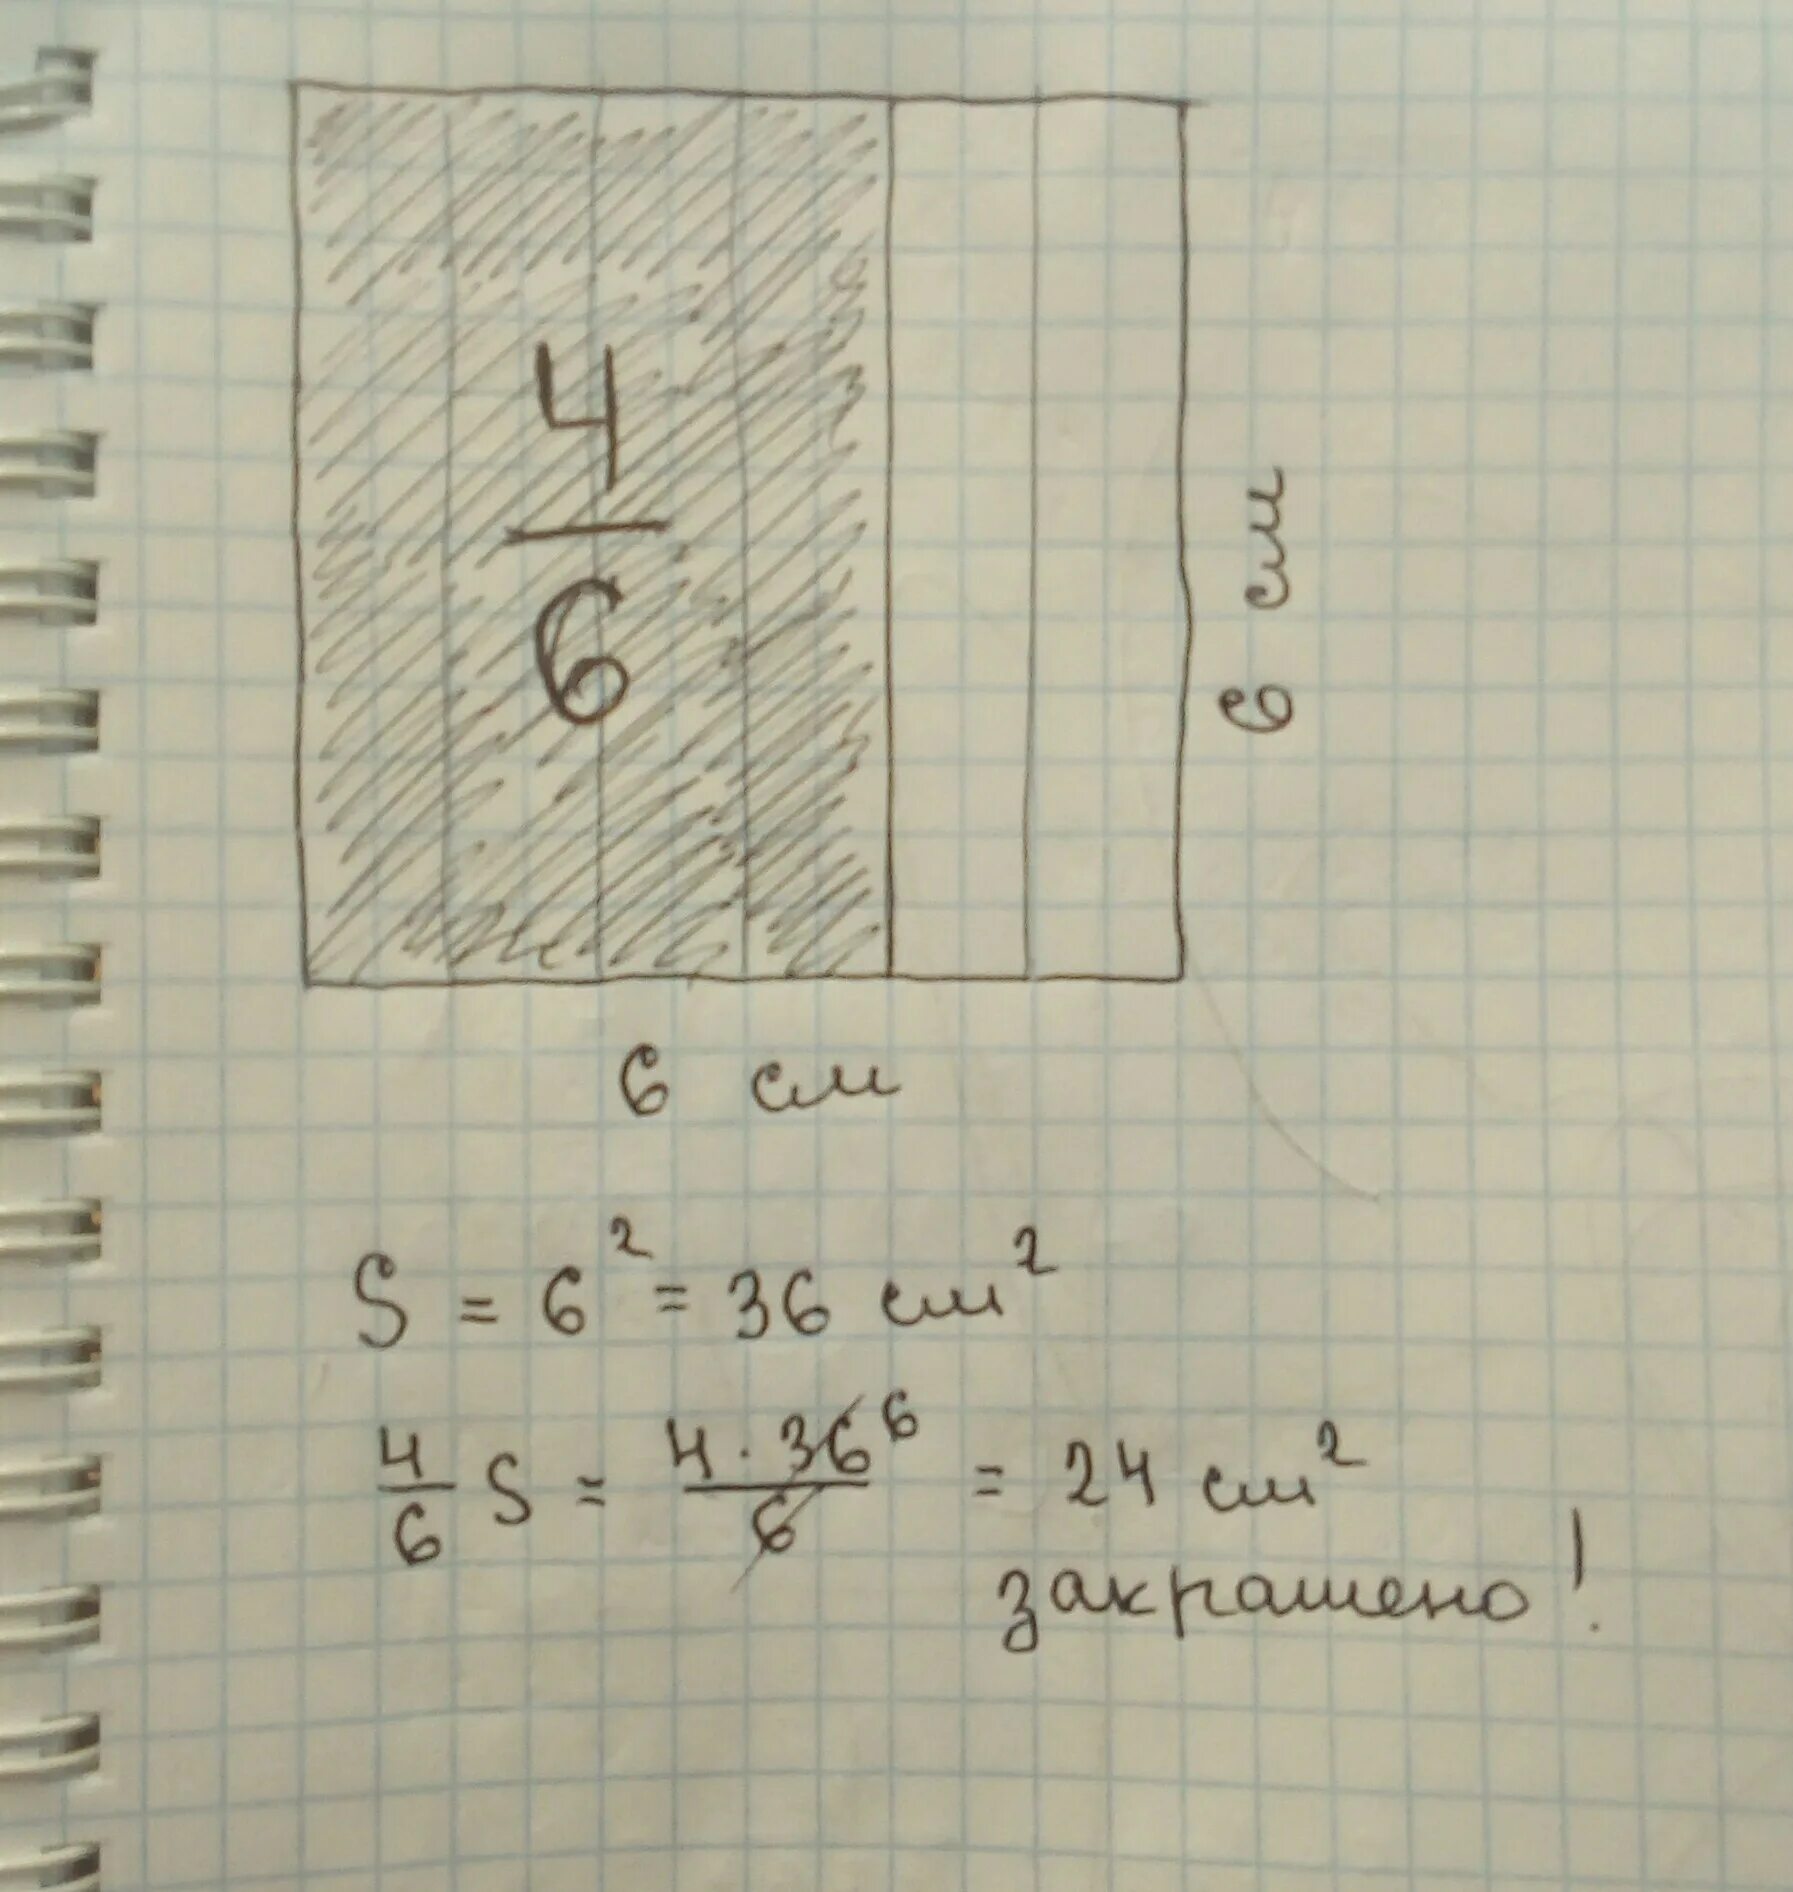 4
6
6 см
6 см
S = 6² = 36 см²
4/6 S = 4 · 36 6 / 6 = 24 см²
закрашено!